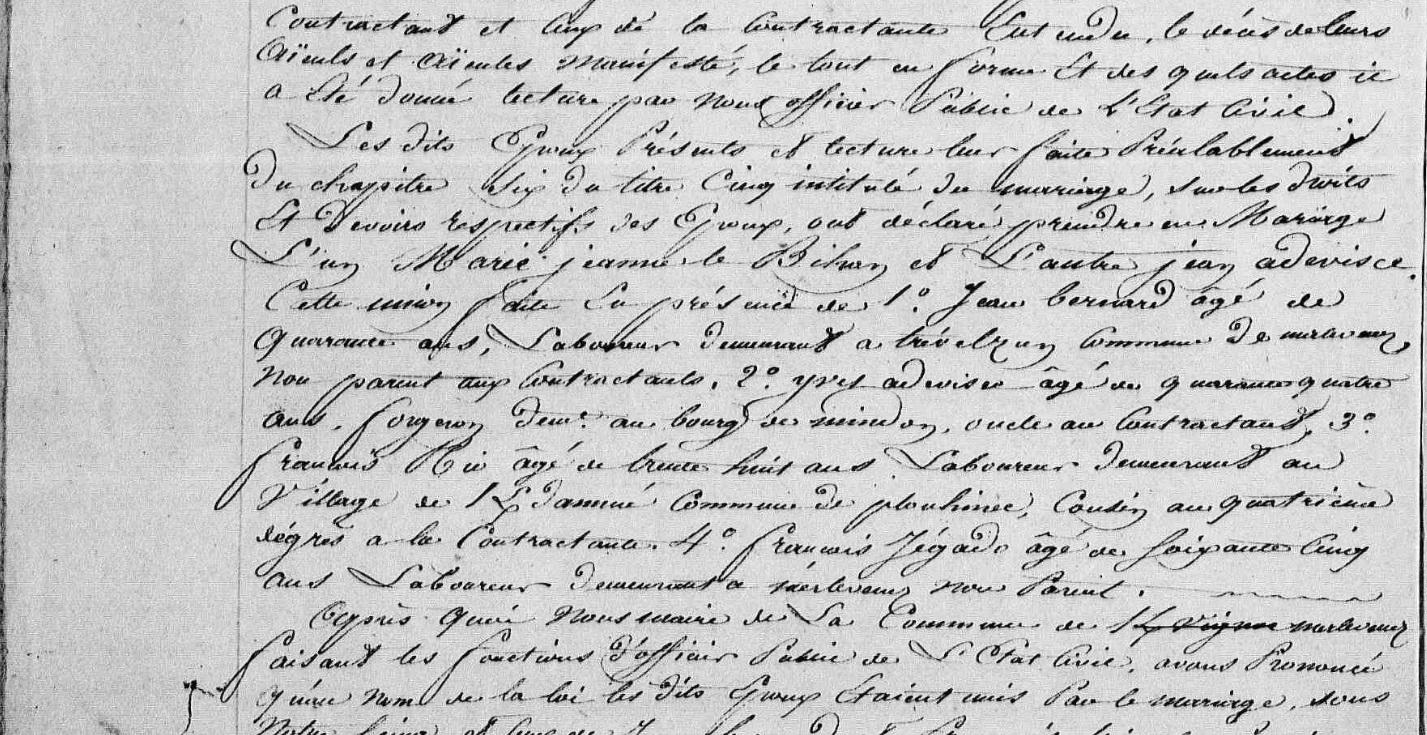 Contractant et Ceux de la Contractante Entendu, le décès de leurs
Aïeuls et Aïeules manifesté, le tout en forme Et des quels actes ie
a Eté donné lecture par nous officier Public de L'Etat Civil.
Les dits Epoux Présents et lecture leur faite Préalablement
Du chapitre Six du titre Cinq intitulé Du mariage, sur les droits
Et Devoirs respectifs des Epoux, ont déclaré prendre en Mariage
L'un Marie jeanne le Bihan et L'autre jean adevisce.
Cette union faite En présence de 1.° Jean bernard âgé de
Quarante ans, Laboureur demeurant a trévelzun Commune De merlevenez,
Non parent aux Contractants, 2.° yves adevisce âgé de quarante quatre
ans, forgeron dem.t au bourg de , oncle au Contractant, 3.°
françois Rio âgé de trente huit ans Laboureur demeurant au
Village de Kdanvé Commune de plouhinec, Cousin au quatrième
dégrés a la Contractante. 4.° françois Jégado âgé de soixante Cinq
ans Laboureur demeurant a merlevenez non Parent.
Après quoi Nous maire de La Commune de Kvignac merlevenez
faisant les fonctions d'officier Public de L'Etat Civil, avons Prononcé
qu'au nom de la loi les dits Epoux Etaient unis Par le mariage, sous
Notre